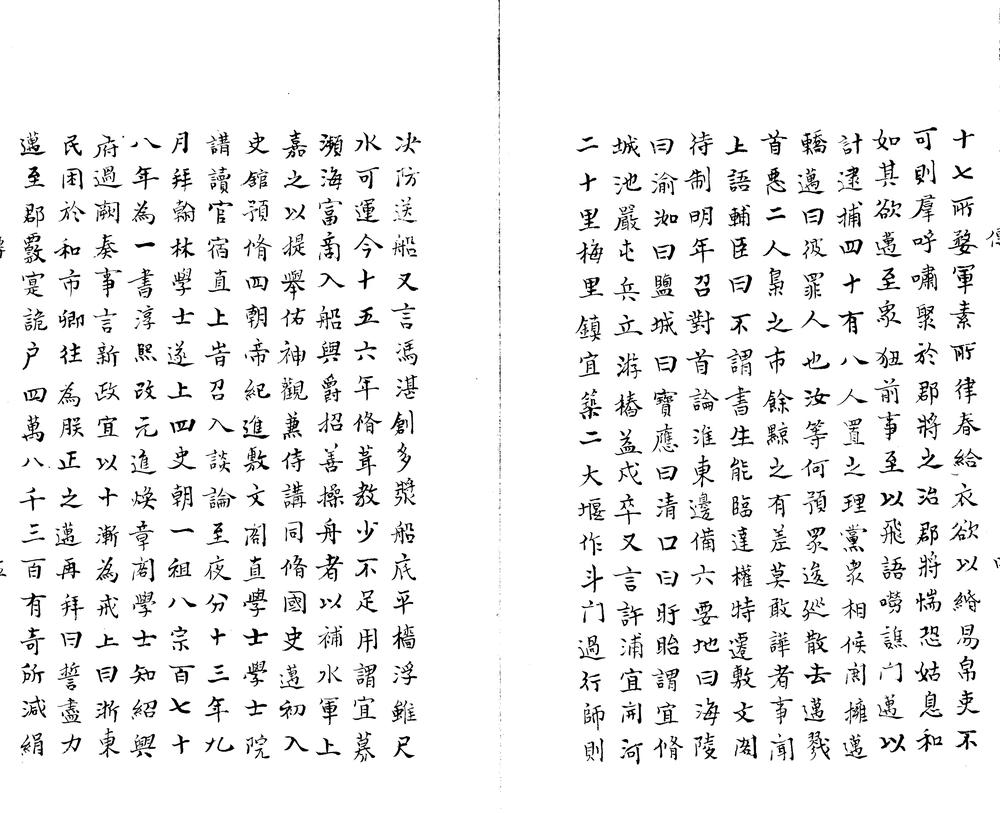 十七所婺軍素所律春給衣欲以緡易帛吏不
可則羣呼嘯聚於郡將之治郡將惴恐姑息和
如其欲邁至衆狃前事至以飛語嘮譙門邁以
計逮捕四十有八人置之理黨衆相候閧擁邁
轎邁曰彼罪人也汝等何預眾逡巡散去邁戮
首惡二人梟之市餘黥之有差莫敢譁者事聞
上語輔臣曰不謂書生能臨達權特遷敷文閣
待制明年召對首論淮東邊備六要地曰海陵
曰渝洳曰鹽城曰寶應曰清口曰盱眙謂宜脩
城池嚴屯兵立游樁益戍卒又言許浦宜開河
二十里梅里鎮宜築二大堰作斗门過行師則
决防送船又言馮湛創多槳船底平檣浮雖尺
水可運今十五六年脩葺教少不足用謂宜募
瀕海富商入船與爵招善操舟者以補水軍上
嘉之以提舉佑神觀兼侍講同脩國史邁初入
史館預脩四朝帝紀進敷文閣直學士學士院
講讀官宿直上旹召入談論至夜分十三年九
月拜翰林學士遂上四史朝一祖八宗百七十
八年為一書淳熙改元進煥章閣學士知紹興
府過闕奏事言新政宜以十漸為戒上曰浙東
民困於和市卿往為朕正之邁再拜曰誓盡力
邁至郡覈寔詭户四萬八千三百有奇所減絹